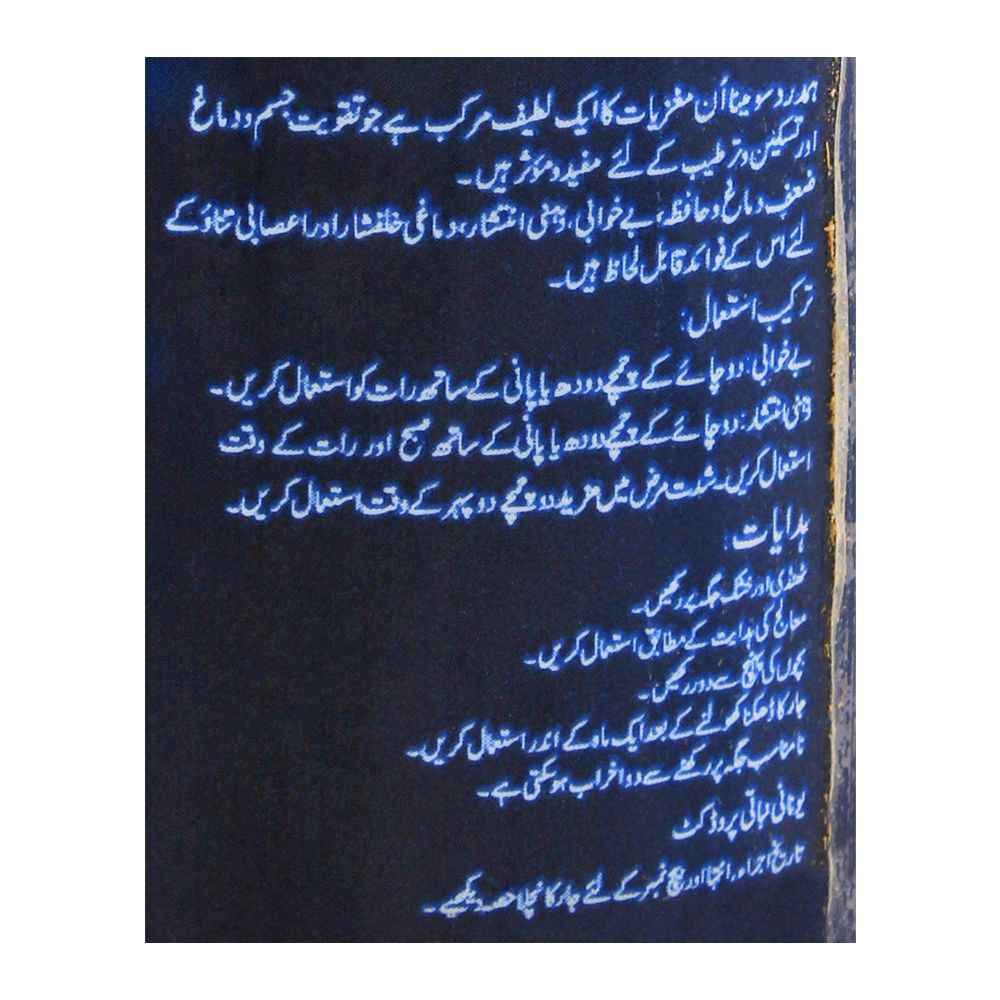 ہمدرد سومینا اُن مغزیات کا ایک لطیف مرکب ہے جو تقویت جسم و دماغ
اور تسکین و ترطیب کے لئے مفید و مؤثر ہیں۔
ضعف دماغ و حافظہ، بے خوابی، ذہنی انتشار، دماغی خلفشار اور اعصابی تناؤ کے
لئے اس کے فوائد قابل لحاظ ہیں۔
ترکیب استعمال:
بے خوابی: دو چائے کے چمچے دودھ یا پانی کے ساتھ رات کو استعمال کریں۔
ذہنی انتشار: دو چائے کے چمچے دودھ یا پانی کے ساتھ صبح اور رات کے وقت
استعمال کریں۔ شدت مرض میں مزید دو چمچے دوپہر کے وقت استعمال کریں۔
ہدایات:
ٹھنڈی اور خشک جگہ پر رکھیں۔
معالج کی ہدایت کے مطابق استعمال کریں۔
بچوں کی پہنچ سے دور رکھیں۔
جار کا ڈھکنا کھولنے کے بعد ایک ماہ کے اندر استعمال کریں۔
نامناسب جگہ پر رکھنے سے دوا خراب ہوسکتی ہے۔
یونانی نباتی پروڈکٹ
تاریخ اجراء، انتہا اور بیچ نمبر کے لئے جار کا نچلا حصہ دیکھیے۔